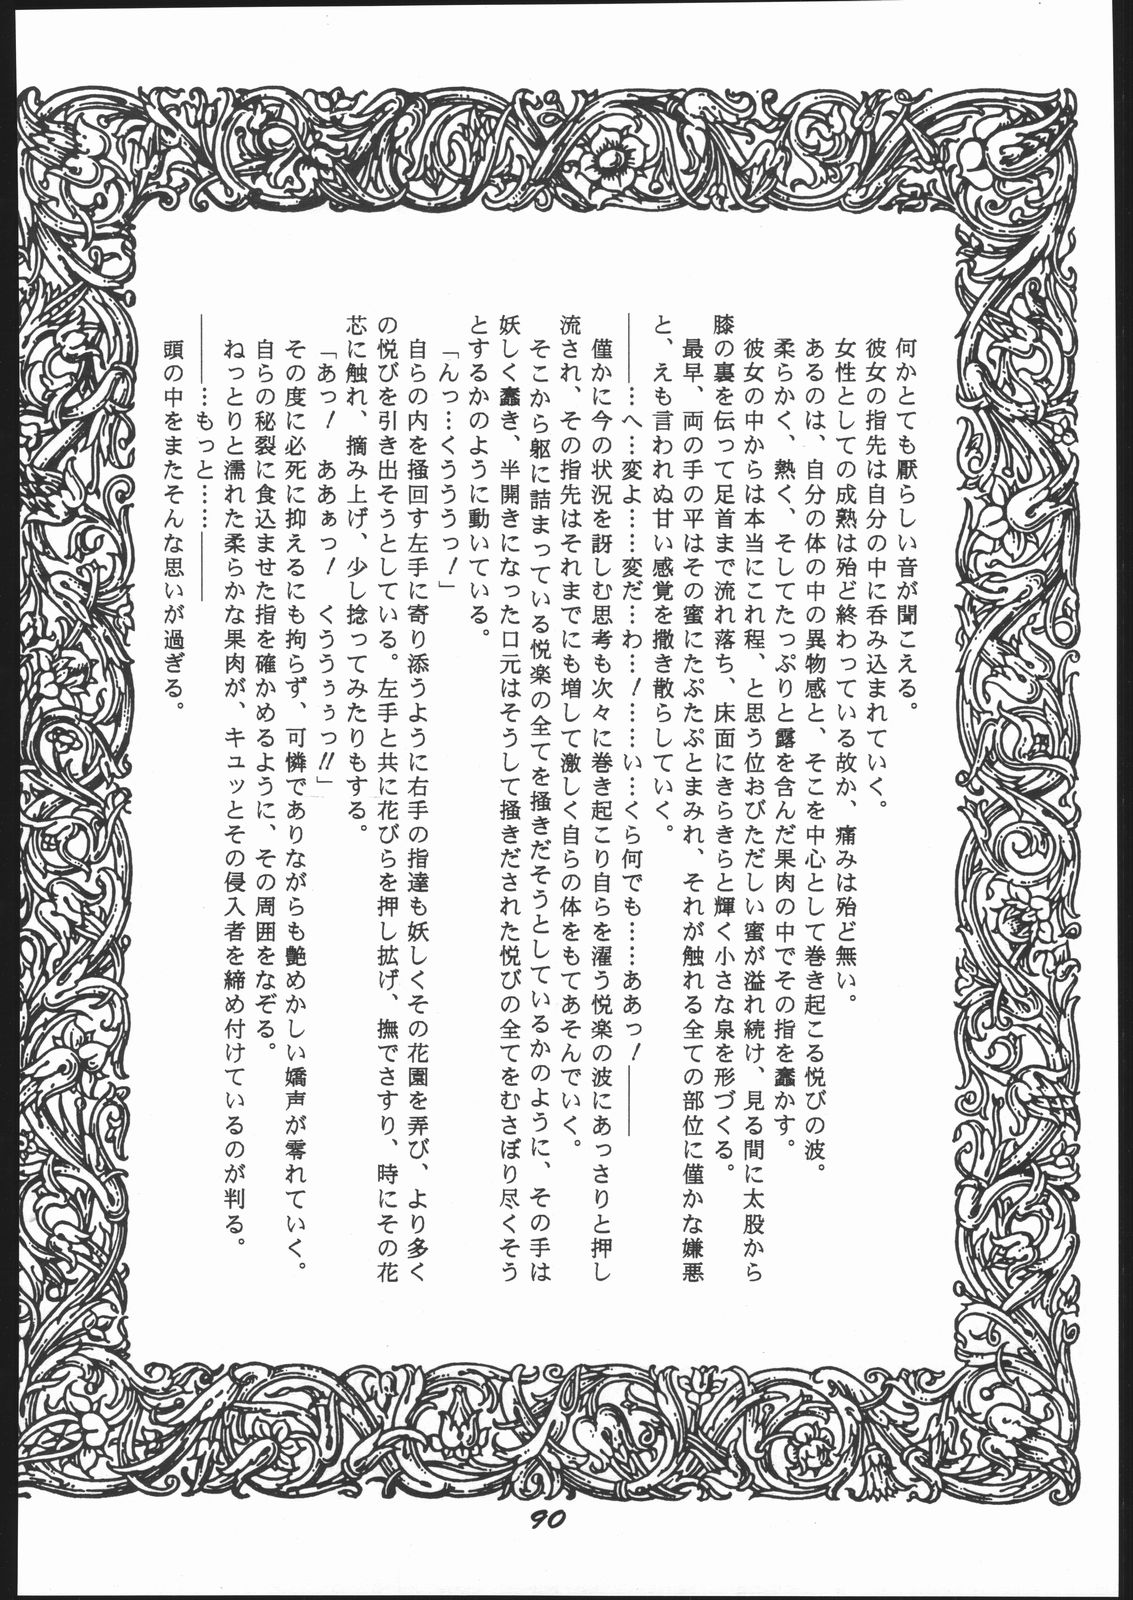 何かとても厭らしい音が聞こえる。
彼女の指先は自分の中に呑み込まれていく。
女性としての成熟は殆ど終わっている故か、痛みは殆ど無い。
あるのは、自分の体の中の異物感と、そこを中心として巻き起こる悦びの波。
柔らかく、熱く、そしてたっぷりと露を含んだ果肉の中でその指を蠢かす。
彼女の中からは本当にこれ程、と思う位おびただしい蜜が溢れ続け、見る間に太股から
膝の裏を伝って足首まで流れ落ち、床面にきらきらと輝く小さな泉を形づくる。
最早、両の手の平はその蜜にたぷたぷとまみれ、それが触れる全ての部位に僅かな嫌悪
と、えも言われぬ甘い感覚を撒き散らしていく。
――…へ…変よ……変だ…わ…！……い…くら何でも……ああっ！――
僅かに今の状況を訝しむ思考も次々に巻き起こり自らを濯う悦楽の波にあっさりと押し
流され、その指先はそれまでにも増して激しく自らの体をもてあそんでいく。
そこから躯に詰まっている悦楽の全てを掻きだそうとしているかのように、その手は
妖しく蠢き、半開きになった口元はそうして掻きだされた悦びの全てをむさぼり尽くそう
とするかのように動いている。
「んっ…くうううっ！」
自らの内を掻回す左手に寄り添うように右手の指達も妖しくその花園を弄び、より多く
の悦びを引き出そうとしている。左手と共に花びらを押し拡げ、撫でさすり、時にその花
芯に触れ、摘み上げ、少し捻ってみたりもする。
「あっ！　ああぁっ！　くううぅぅっ!!」
その度に必死に抑えるにも拘らず、可憐でありながらも艶めかしい嬌声が零れていく。
自らの秘裂に食込ませた指を確かめるように、その周囲をなぞる。
ねっとりと濡れた柔らかな果肉が、キュッとその侵入者を締め付けているのが判る。
――…もっと……――
頭の中をまたそんな思いが過ぎる。
90